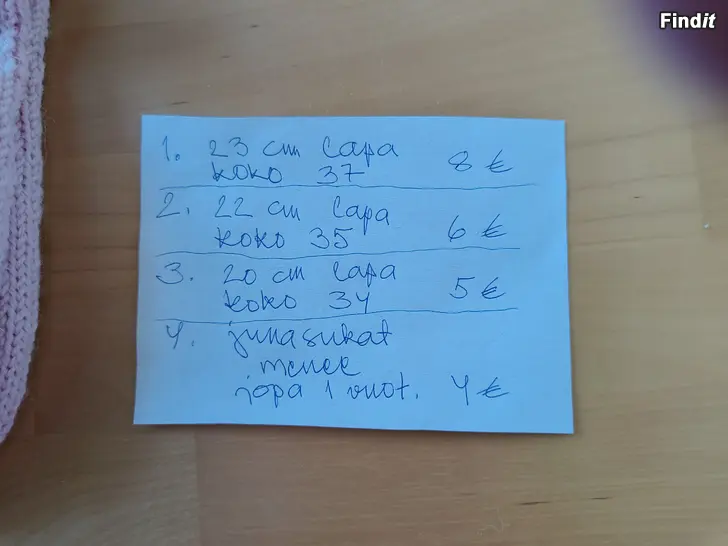 Findit
1. 23 cm Lapa
koko 37 8 €
2. 22 cm Lapa
koko 35 6 €
3. 20 cm Lapa
koko 34 5 €
4. junasukat
menee
jopa 1 vuot. 4 €